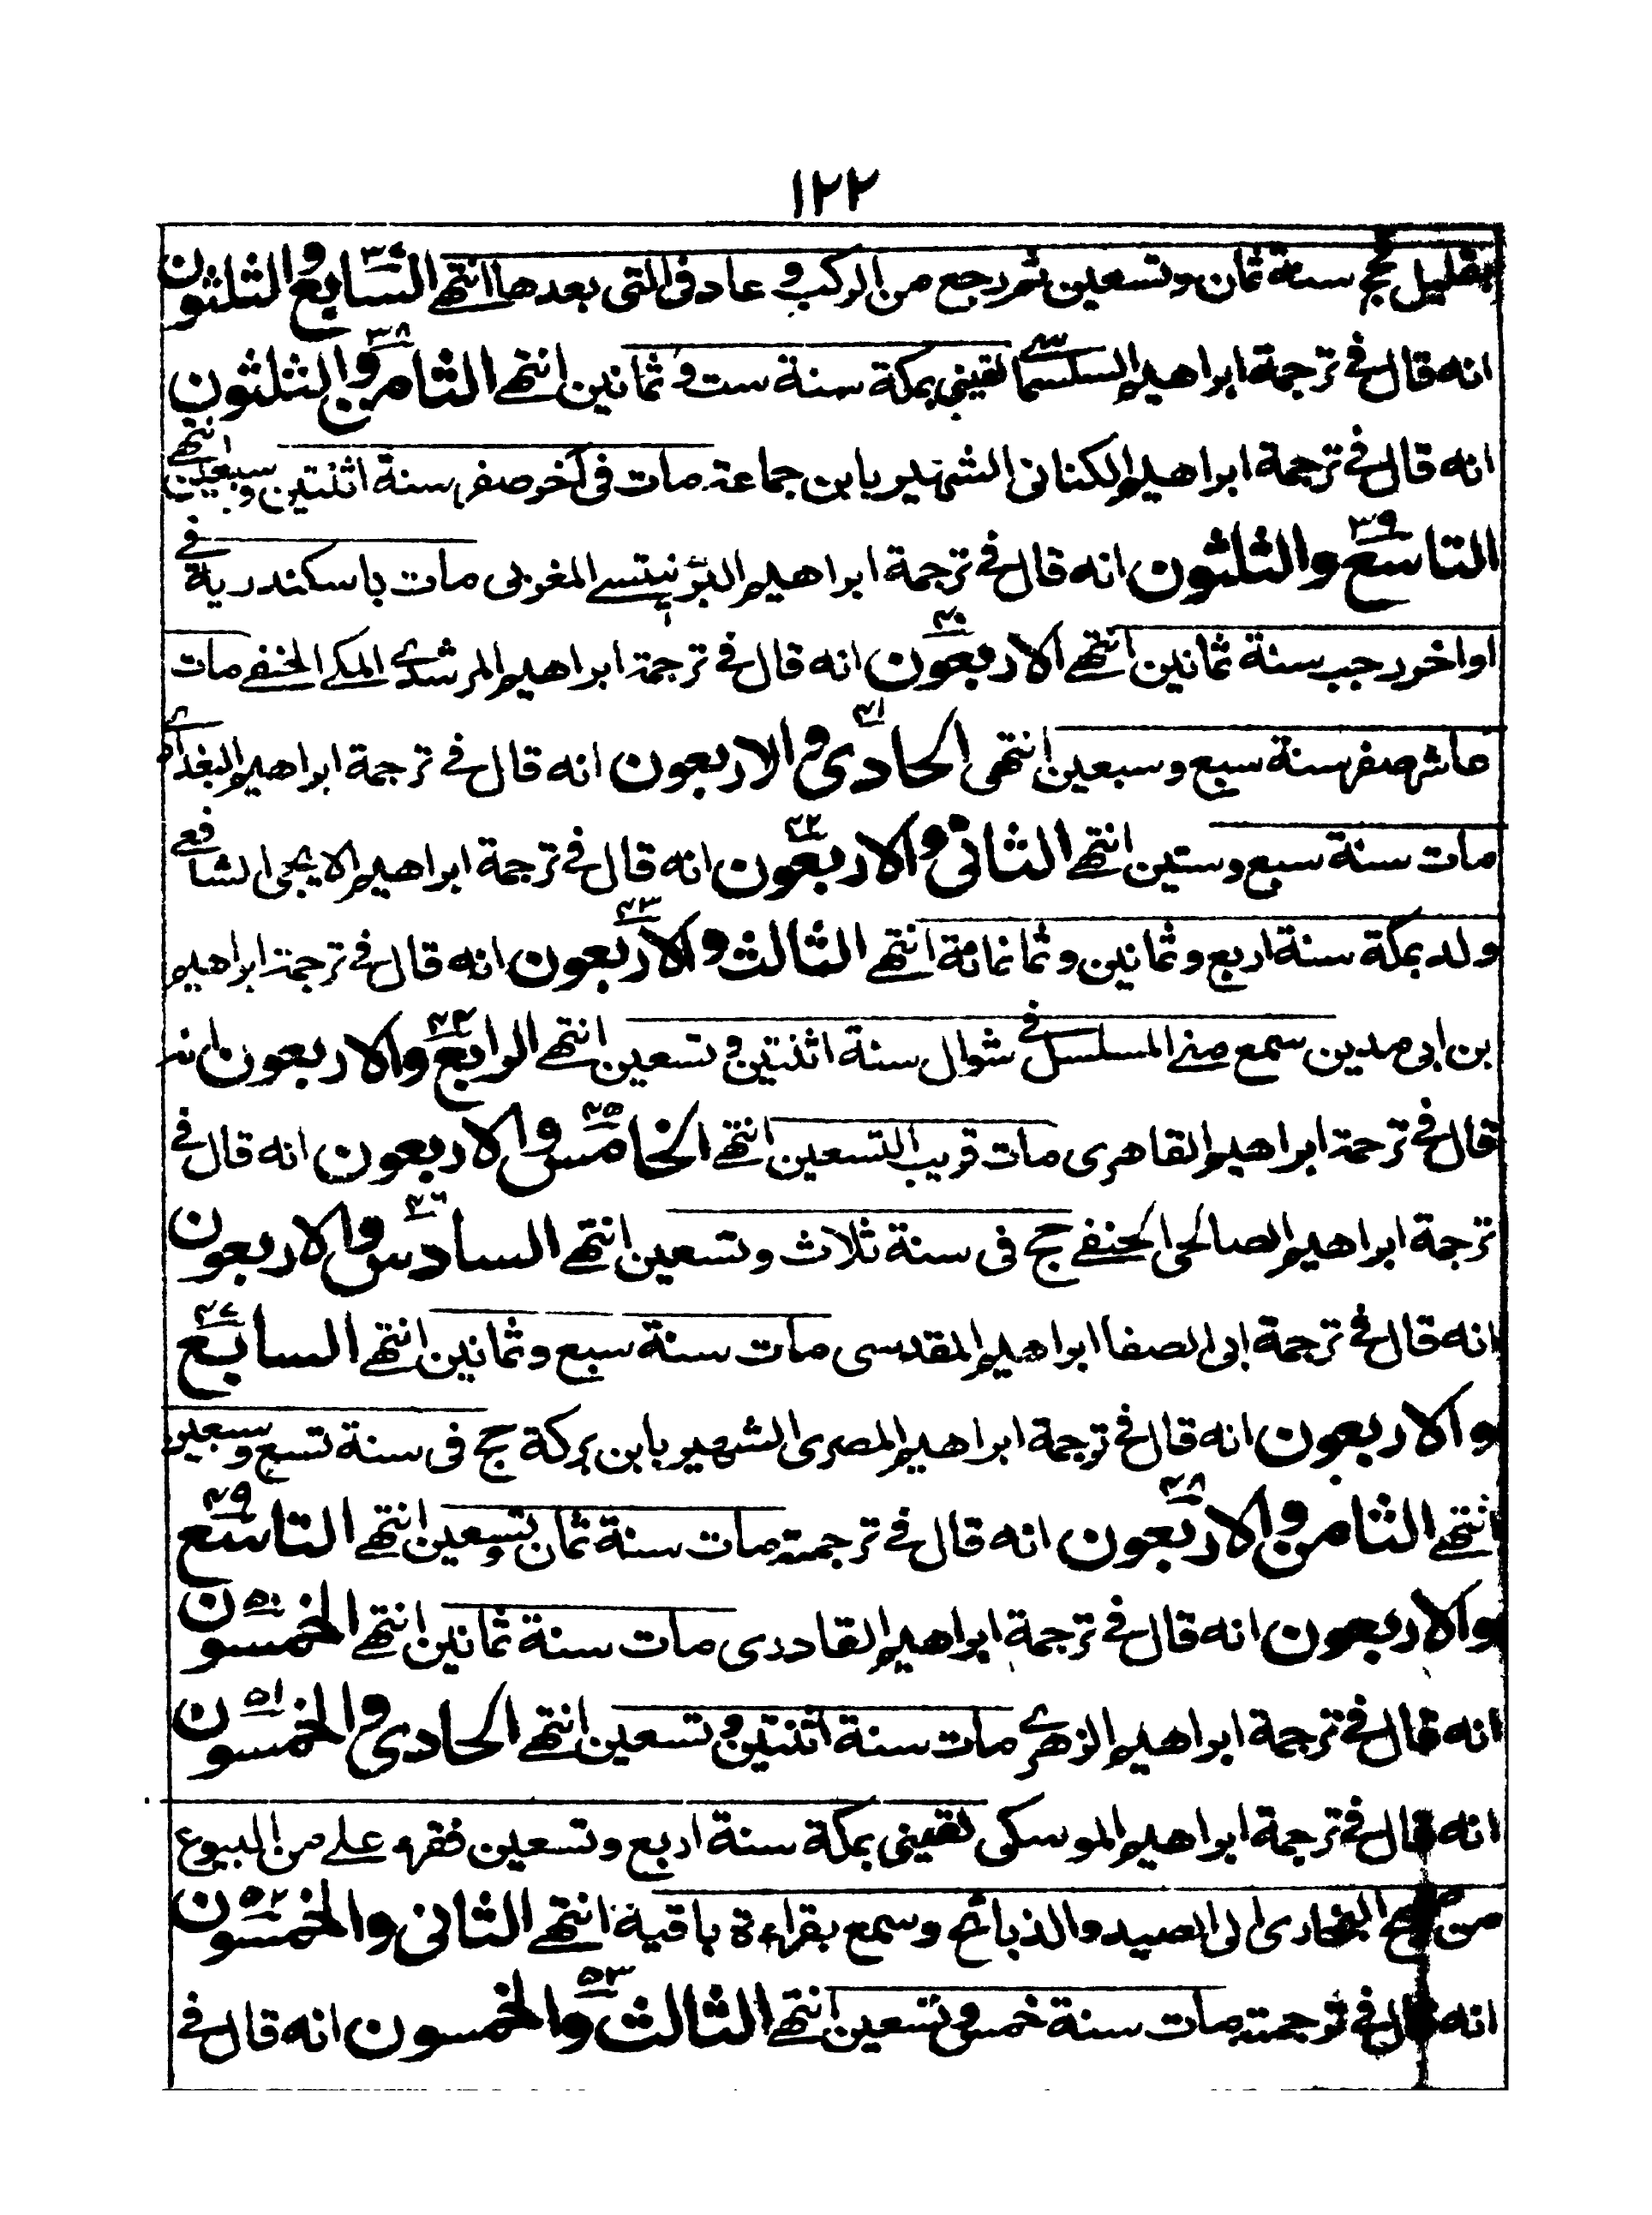 ١٢٢
بقليل حج سنة ثمان وتسعين ثم رجع من الركب و عاد فى التى بعدها انتهى السابع والثلثون ٣٧
انه قال فى ترجمة ابراهيم لقيني بمكة سنة ست و ثمانين انتهى الثامن والثلثون ٣٨
انه قال فى ترجمة ابراهيم الكنانى الشهير بابن جماعة مات فى آخر صفر سنة اثنتين وسبعين انتهى
التاسع والثلثون ٣٩ انه قال فى ترجمة ابراهيم المغربى مات باسكندرية فى
اواخر رجب سنة ثمانين انتهى الاربعون ٤٠ انه قال فى ترجمة ابراهيم المرشدى المكى الحنفى مات
عاشر صفر سنة سبع وسبعين انتهى الحادى والاربعون ٤١ انه قال فى ترجمة ابراهيم البغدادى
مات سنة سبع وستين انتهى الثانى والاربعون ٤٢ انه قال فى ترجمة ابراهيم الايجى الشافعى
ولد بمكة سنة اربع وثمانين وثمانمائة انتهى الثالث والاربعون ٤٣ انه قال فى ترجمة ابراهيم
بن ابى مدين سمع منى المسلسل فى شوال سنة اثنتين و تسعين انتهى الرابع والاربعون ٤٤ انه
قال فى ترجمة ابراهيم القاهرى مات قريب التسعين انتهى الخامس والاربعون ٤٥ انه قال فى
ترجمة ابراهيم الصالحى الحنفى حج فى سنة ثلاث وتسعين انتهى السادس والاربعون ٤٦
انه قال فى ترجمة ابى الصفا ابراهيم المقدسى مات سنة سبع وثمانين انتهى السابع ٤٧
والاربعون انه قال فى ترجمة ابراهيم المصرى الشهير بابن بركة حج فى سنة تسع وسبعين
انتهى الثامن والاربعون ٤٨ انه قال فى ترجمته مات سنة ثمان وتسعين انتهى التاسع ٤٩
والاربعون انه قال فى ترجمة ابراهيم القادرى مات سنة ثمانين انتهى الخمسون ٥٠
انه قال فى ترجمة ابراهيم الزهرى مات سنة اثنتين و تسعين انتهى الحادى والخمسون ٥١
انه قال فى ترجمة ابراهيم الموسكى لقينى بمكة سنة اربع وتسعين فقرء على من البيوع
من صحيح البخارى الى الصيد والذبائح وسمع بقراءة باقية انتهى الثانى والخمسون ٥٢
انه قال فى ترجمته مات سنة خمس و تسعين انتهى الثالث والخمسون ٥٣ انه قال فى